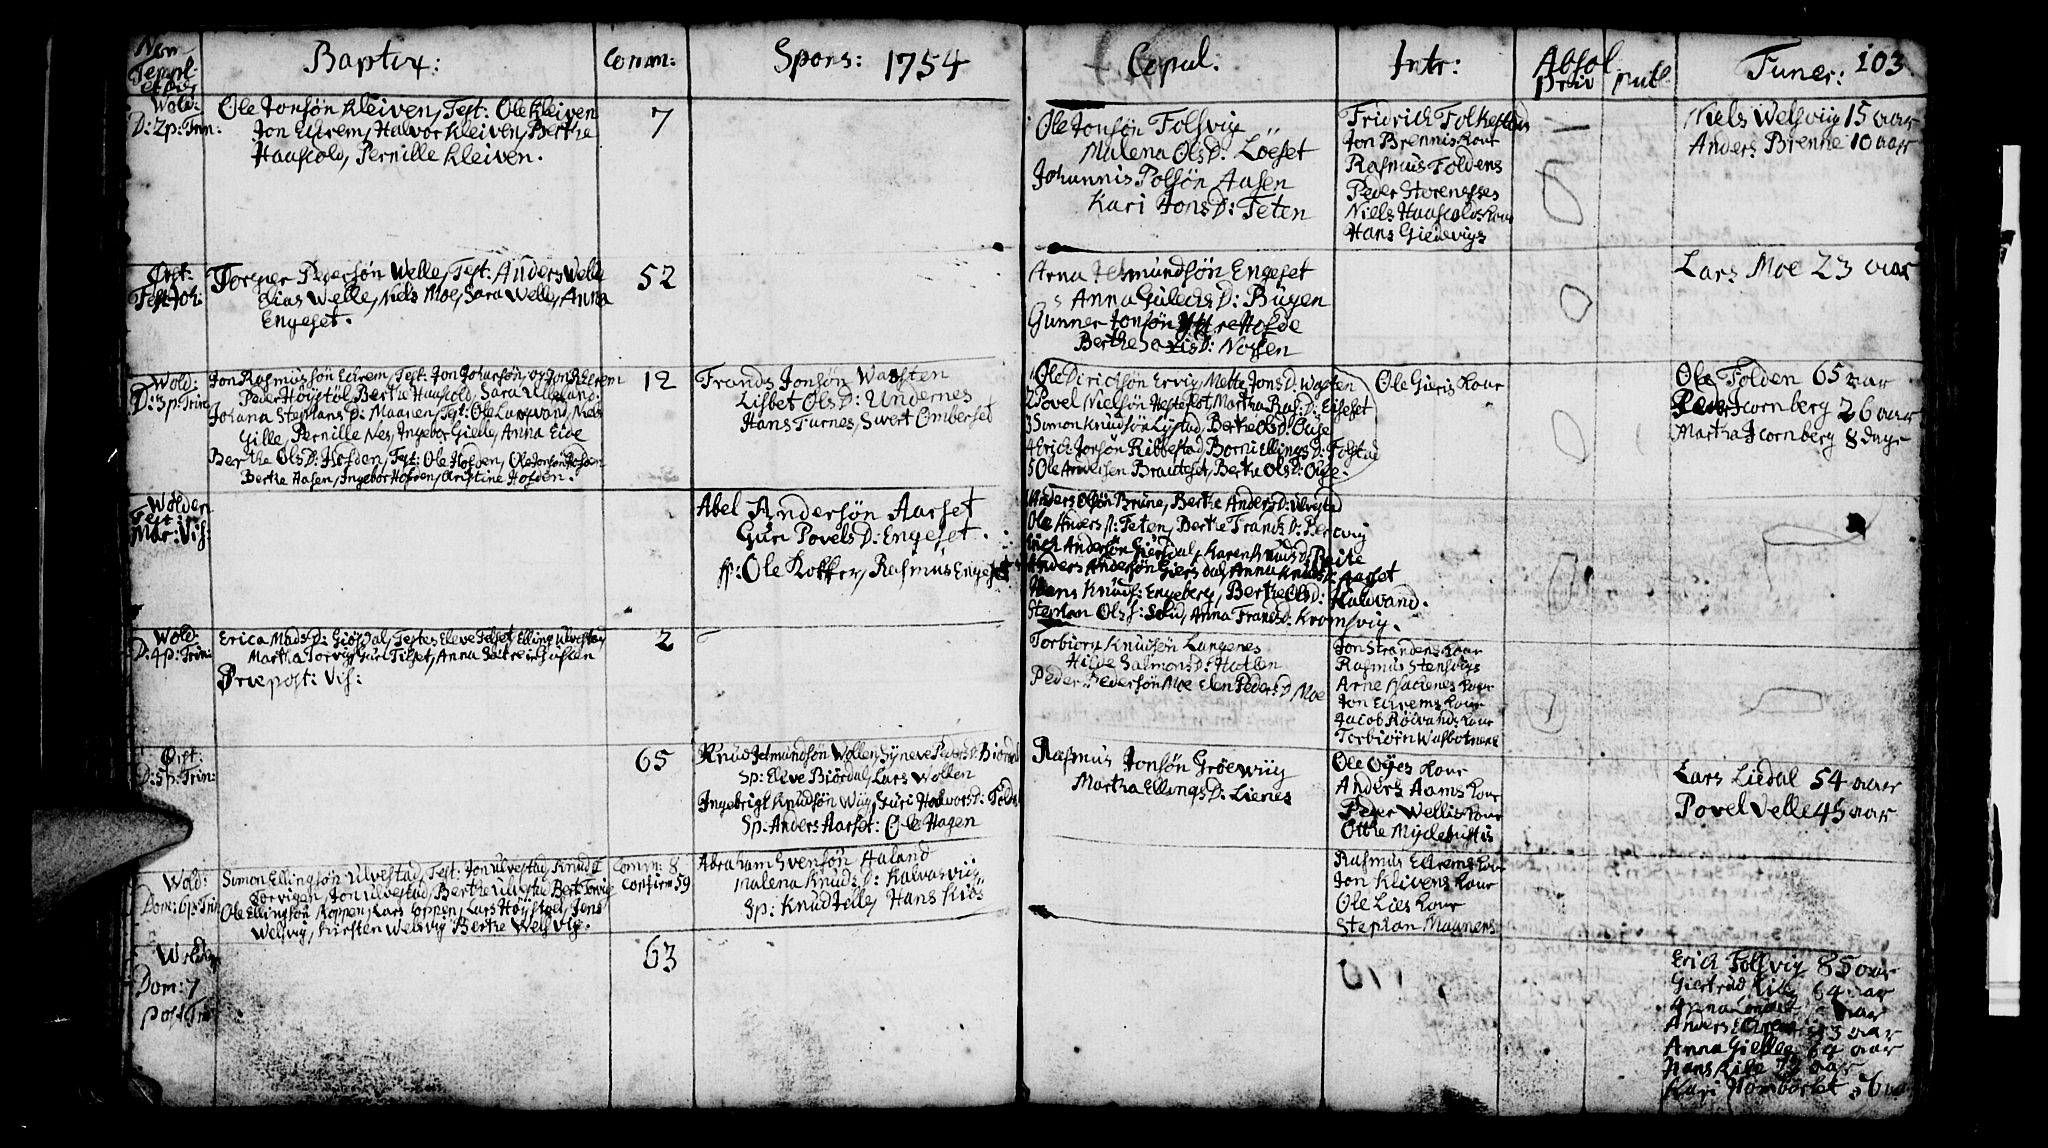 Nom Templ: et Dies
Baptiz:
Comm:
Spons: 1754
Copul.
Intr:
Absol
priv publ
Funer: 103
Wold:
D: 2 p: Trin:
Ole Jonsøn Kleiven, Test: Ole Kleiven
Jon Echrem, Halvor Kleiven, Berthe
Haafscold, Pernille Kleiven.
7
Ole Jonsøn Folsvig
Malena Ols D: Løeset
Johannis Polsøn Aasen
Kari Jons D: Teten
Fridrich Folkestads
Jon Brennis Kone
Rasmus Foldens
Peder Storenesses
Niels Haafscolds Kone
Hans Giedevigs
Niels Welsvig 15 aar
Anders Brenne 10 aar
Ørst:
Fest: Joh:
Torger Pedersøn Welle, Test: Anders Welle
Elias Welle, Niels Moe, Sara Welle, Anna
Engeset.
52
Arna Jetmundsøn Engeset
Anna Gulechs D: Bügen
Gunner Jonsøn Yttrehofde
Berthe D: Nossen
Lars Moe 23 aar
Wold:
D: 3 p: Trin:
Jon Rasmussøn Echrem, Test: Jon Joharsøn, og Jon R Echrem
Peder Høystøl, Berthe Haafscold, Sara Ulvestad.
Johana Stephans D: Maanen, Test: Ole Langvand, Niels
Gille, Pernille Nes, Ingebor Gielle, Anna Eide
Berthe Ols D: Hofden, Test: Ole Hofden, Ole Jonsøn Hofden
Berthe Aasen, Ingebor Hofden, Christine Hofden.
12
Frands Jonsøn Watten
Lisbet Ols D: Undernes
Hans Furnes, Sivert Omberset
1 Ole Dirichsøn Ervig, Mette Jons D: Watten
2 Povel Nielsøn Hesteflot, Martha Ras: D: Eiseset
3 Simon Knudsøn Lystad, Berthe Ols D: Ouse
4 Erich Jonsøn Ribbestad, Borni Ellings D: Folstad
5 Ole Andersen Brauteset, Berthe Ols D: Ouse.
Ole Gieris Kone
Ole Folden 65 aar
Peder Hornberg 26 aar
Martha Hornberg 8 dage
Wolden
Fest:
Mar: Vis:
Abel Andersøn Aarset
Guri Povels D: Engeset.
ff: Ole Kokker, Rasmus Engeset
Anders Olsøn Brune, Berthe Anders D: Ulvestad
Ole Anders: Teten, Berthe Frands D: Bercvig
Erich Andersøn Giersdal, Karen Knuds D: Reite
Anders Andersøn Giersdal, Anna Knuds D: Aarset
Hans Knuds: Engeberg, Berthe Ols D: Kalvvand.
Stephan Ols S: Solid, Anna Frands D: Kromsvig.
Wold:
D: 4 p: Trin:
Erica Mads D: Giøsdal, Testes Eleve Telset, Elling Ulvestad
Martha Torvig, Guri Tilset, Anna
Ørie post: Vis:
2
Torbiørn Knudsøn Langenes
Hilde Salmons D: Hatlen
Peder Pedersøn Moe Elen Peders D Moe
Jon Strandens Kone
Rasmus Stensvigs
Arne Kone
Jon Echrems Kone
Jacob Røivands Kone
Torbiørn Wasbotnens
Ørst:
D: 5 p: Trin:
65
Knud Jetmundsøn Wollen, Synneve Peders D: Biørdal
Sp: Elive Biørdal, Lars Wollen
Ingebrigt Knudsøn Wiig, Guri Halvors D: Folde
Sp: Anders Aarset: Ole Hagen
Rasmus Jonsøn Grøewiig
Martha Ellings D: Lienes
Ole Oyes Kone
Anders Aams Kone
Peder Wellis Kone
Otthe Myclebustis
Lars Liedal 54 aar
Povel Velle 45 aar
Wold:
Dom: 6 p: Trin
Simon Ellingsøn Ulvestad, Test: Jon Ulvestad, Knud T
Torvigen, Jon Ulvestad, Berthe Ulvestad Bert: Torvig
Ole Ellingsøn Koppen, Lars Koppen, Lars Høystøel, Jens
Welsvig, Kirsten Welsvig Berthe Welsvig.
Comm: 8
Confirm 59
Abraham Svensøn Aaland
Malena Knuds D: Kalvasviig
Sp: Knud Jelle, Hans Kiøs
Rasmus Echrems Kone
Jon Klivens Kone
Ole Lies Kone
Stephan Maanens
Wolden
Dom: 7
post Trin
63
Erich Folsvig 85 aar
Giertrud 64 aar
Anna aar
Anders Echrem 83 aar
Anna Gielle 64 aar
Hans Eide 73 aar
Kari Homborset 36 aar